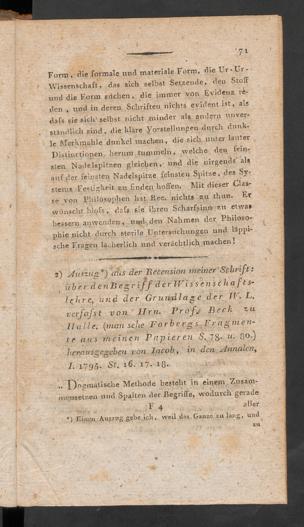 71
Form, die formale und materiale Form, die Ur-Ur-
Wissenschaft, das sich selbst Setzende, den Stoff
und die Form suchen, die immer von Evidenz re-
den, und in deren Schriften nichts evident ist, als
daſs sie sich selbst nicht minder als andern unver-
ständlich sind, die klare Vorstellungen durch dunk-
le Merkmahle dunkel machen, die sich unter lauter
Distinctionen herum tummeln, welche den fein-
sten Nadelspitzen gleichen, und die nirgends als
auf der feinsten Nadelspitze feinsten Spitze, des Sy-
stems Festigkeit zu finden hoffen. Mit dieser Clas-
se von Philosophen hat Rec. nichts zu thun. Er
wünscht bloſs, daſs sie ihren Scharfsinn zu etwas
bessern anwenden, und den Nahmen der Philoso-
phie nicht durch sterile Untersuchungen und läppi-
sche Fragen lächerlich und verächtlich machen!
2) Auszug*) aus der Recension meiner Schrift:
über den Begriff der Wissenschafts-
lehre, und der Grundlage der W. L.
verfaſst von Hrn. Prof. Beck zu
Halle, (man sehe Forbergs Fragmen-
te aus meinen Papieren S. 78. u. 80.)
herausgegeben von Iacob, in den Annalen,
I. 1795. St. 16. 17. 18.
„Dogmatische Methode besteht in einem Zusam-
mensetzen und Spalten der Begriffe, wodurch gerade
F 4 aller
*) Einen Auszug gebe ich, weil das Ganze zu lang, und
zu